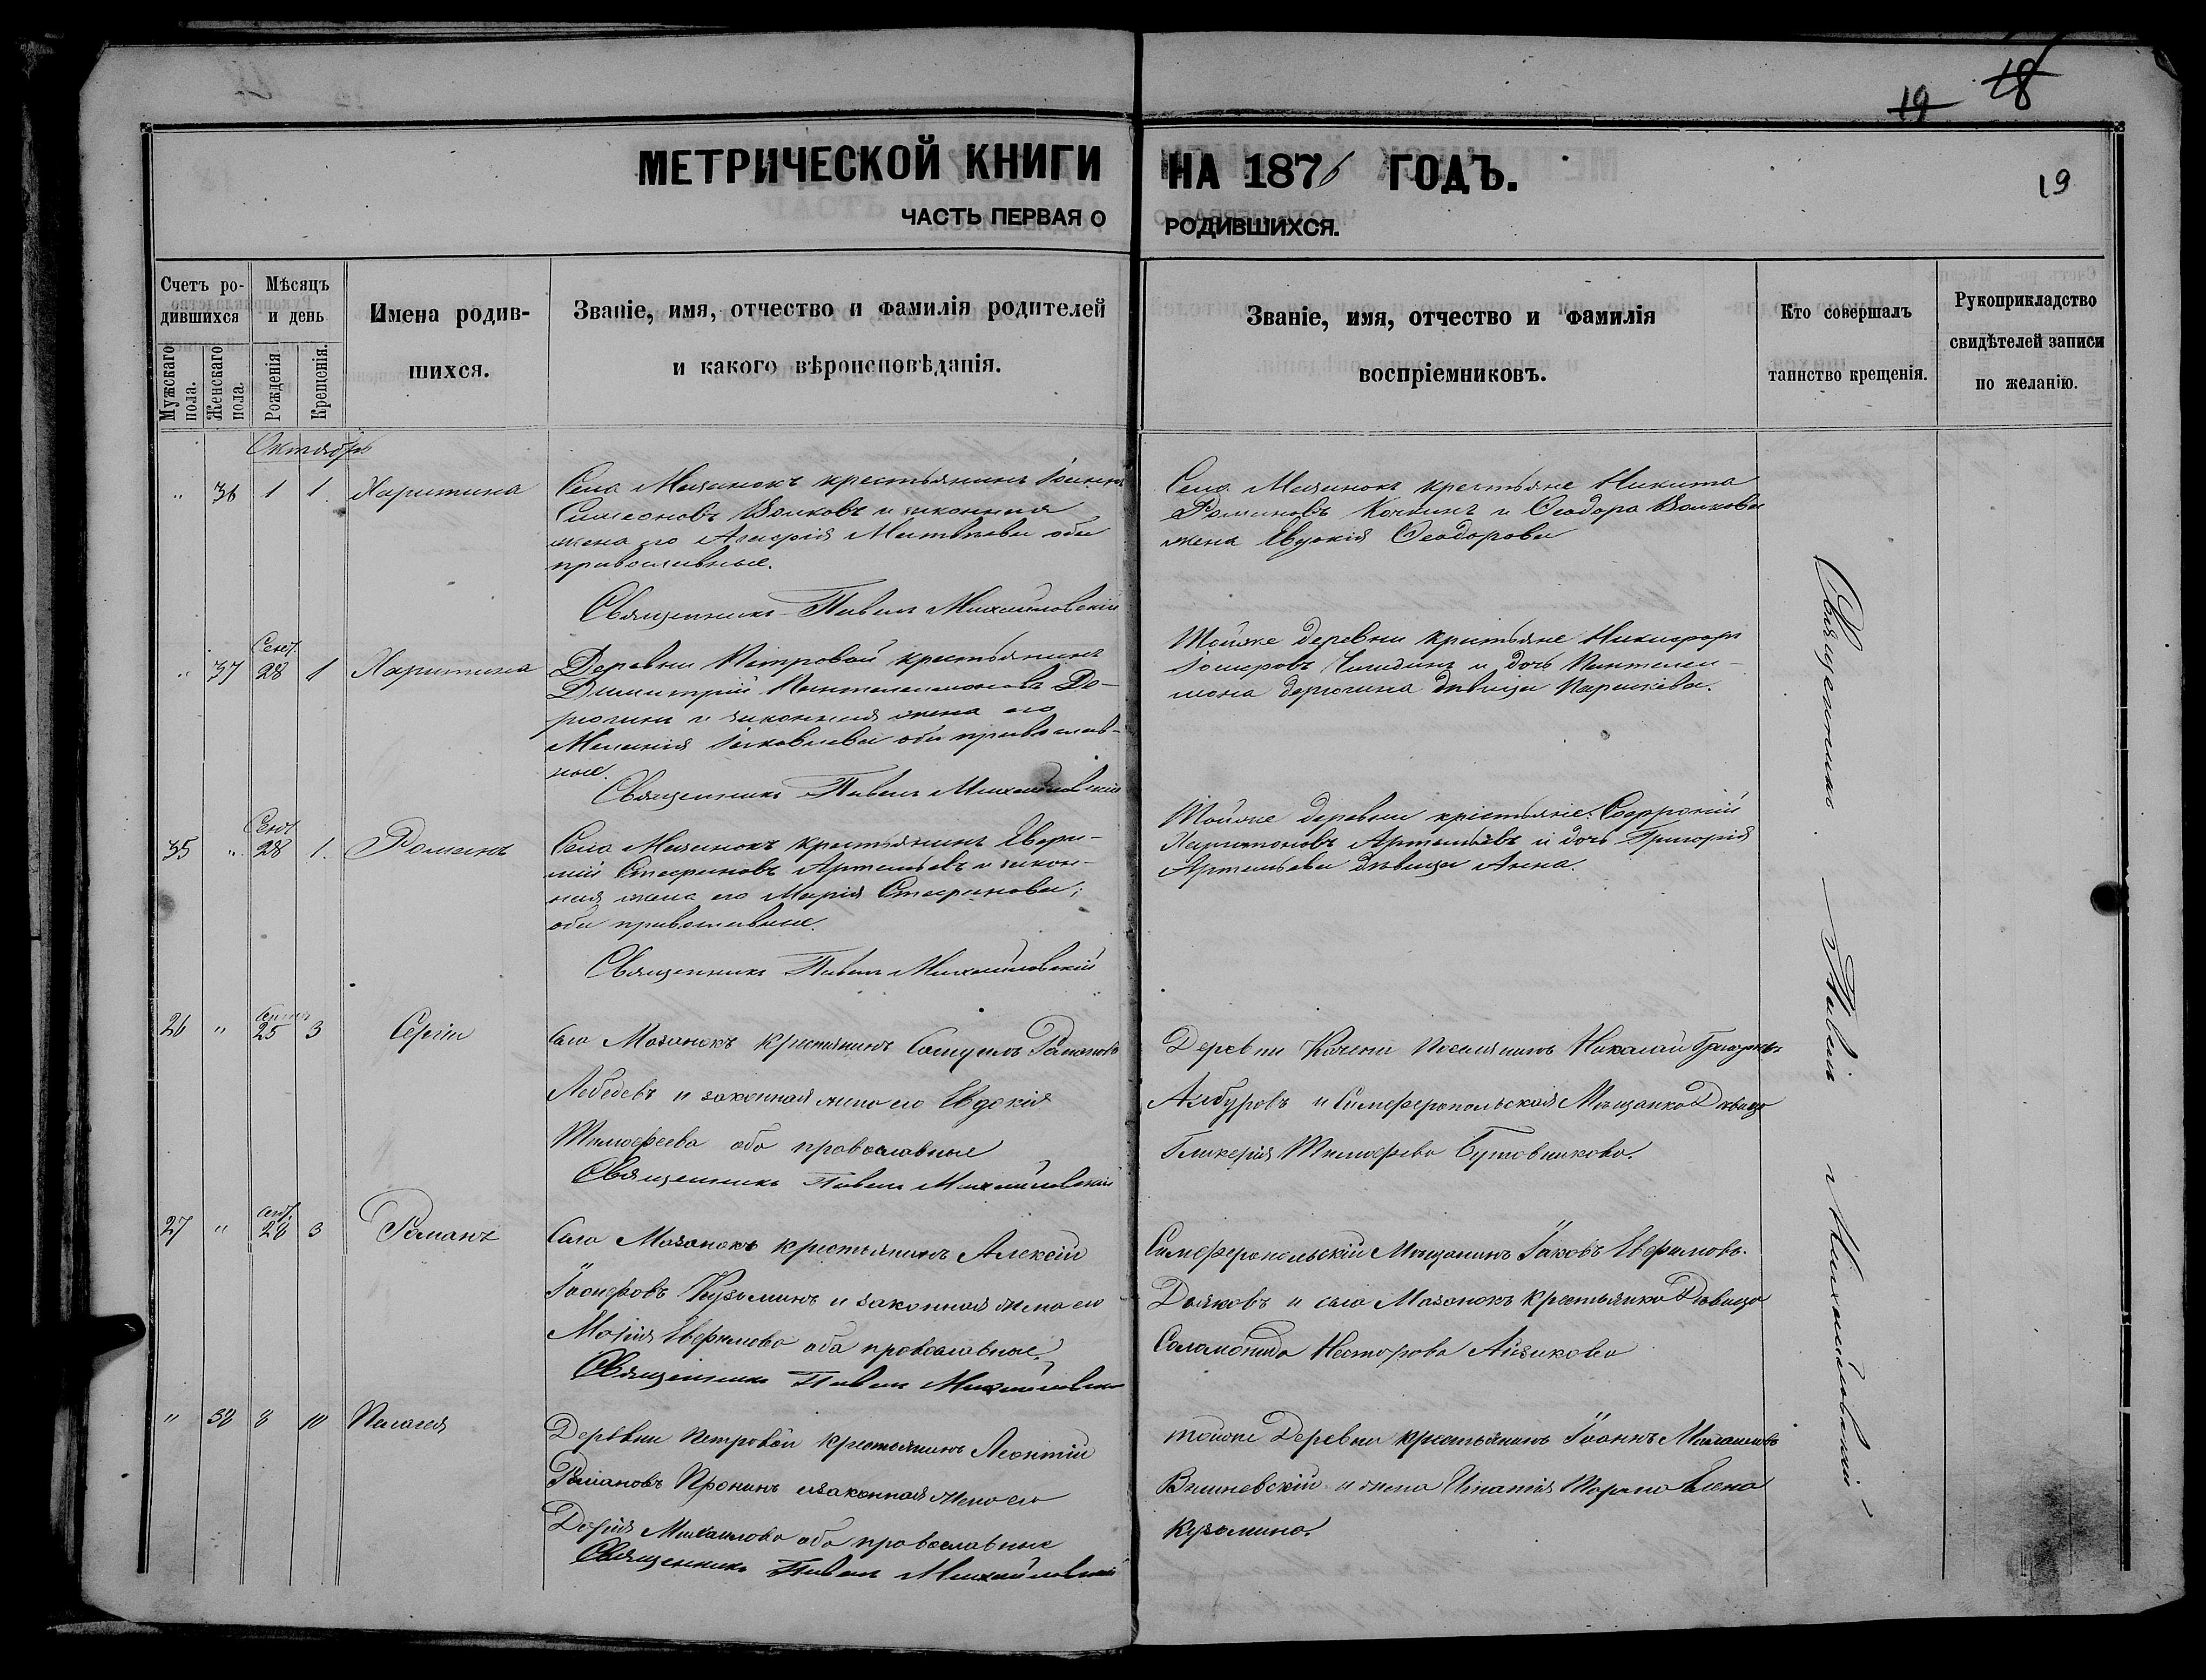 19 18
МЕТРИЧЕСКОЙ КНИГИ НА 1876 ГОДЪ.
19
ЧАСТЬ ПЕРВАЯ О РОДИВШИХСЯ.
Счетъ родившихся
Мужскаго пола.
Женскаго пола.
Мѣсяцъ и день
Рожденія
Крещенія.
Имена родив-
шихся.
Званіе, имя, отчество и фамилія родителей
и какого вѣроисповѣданія.
Званіе, имя, отчество и фамилія
воспріемниковъ.
Кто совершалъ
таинство крещенія.
Рукоприкладство
свидѣтелей записи
по желанію.
Октябрь
" 36 1 1. Харитина
Села Мазанокъ крестьянинъ Іоаннъ
Симеоновъ Волковъ и законная
жена его Агафія Матвѣева оба
православные.
Священникъ Павелъ Михайловскій
Села Мазанокъ крестьяне Никита
Романовъ и Ѳеодора Волкова
жена Евдокія Ѳеодорова
" 37 Сент. 28 1 Харитина
Деревни Петровой крестьянинъ
Димитрій Пантелеимоновъ Де-
рюгинъ и законная жена его
Меланія Іаковлева оба православ-
ные.
Священникъ Павелъ Михайловскій
Тойже деревни крестьяне Никифоръ
и дочь Пантелеи-
мона Дерюгина дѣвица Параскева.
35 " Сент 28 1. Романъ
Села Мазанокъ крестьянинъ Евфи-
мій Стефановъ Артемьевъ и закон-
ная жена его Марія Стефанова;
оба православные.
Священникъ Павелъ Михайловскій
Тойже деревни крестьяне: Софроній
Харитоновъ Артемьевъ и дочь Григорія
Артемьева дѣвица Анна.
26 " 25 3 Сергій
Села Мазанокъ крестьянинъ Самуилъ Романовъ
Лебедевъ и законная жена его Евдокія
Тимофеева оба православные
Священникъ Павелъ Михайловскій
Деревни поселянинъ Николай Григорьевъ
и Симферопольская Мѣщанка Дѣвица
Гликерія Тимофеева
27 " сент. 28 3 Романъ
Села Мазанокъ крестьянинъ Алексій
Іосифовъ Кузьминъ и законная жена его
Марія Евфимова оба православные.
Священникъ Павелъ Михайловскій
Симферопольскій Мѣщанинъ Іаковъ Евфимовъ
Дьяковъ и села Мазанокъ крестьянка Дѣвица
Соломонида Несторова
" 38 8 10 Пелагея
Деревни Петровой крестьянинъ Леонтій
Романовъ Пронинъ и законная жена его
Дарія Михаилова оба православные
Священникъ Павелъ Михайловскій
тойже Деревни крестьянинъ Іоаннъ
Вишневскій и жена Игнатія Елена
Кузьмина.
Священникъ Павелъ Михайловскій